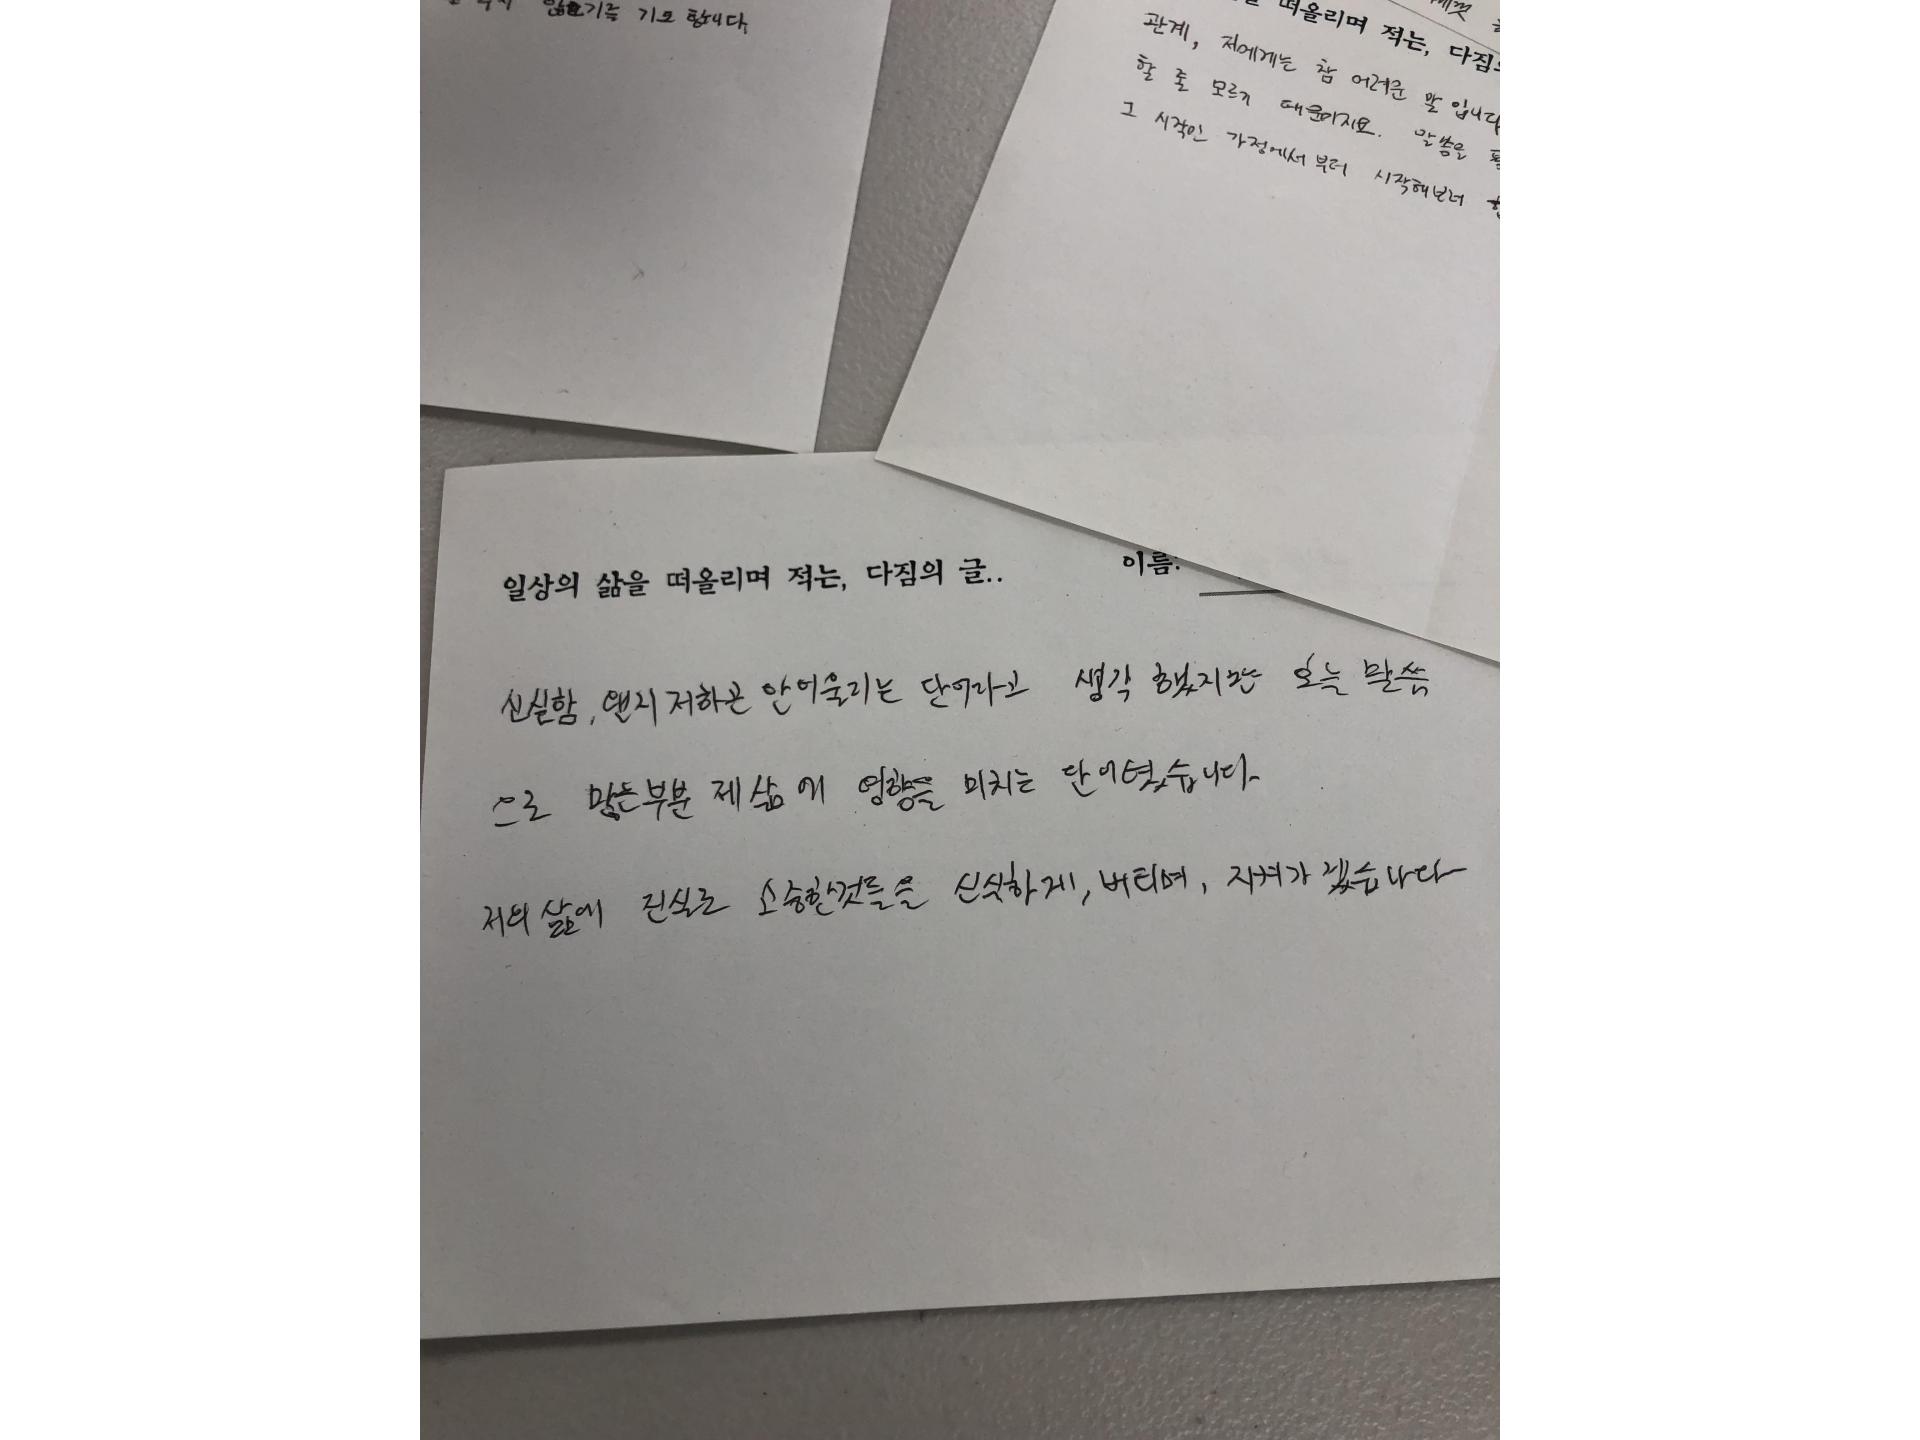 않으기를 기도 합니다.
떠올리며 적는, 다짐의
관계, 저에게는 참 어려운 말 입니다
할 줄 모르기 때문이지요. 말씀을
그 시작인 가정에서부터 시작해보려
일상의 삶을 떠올리며 적는, 다짐의 글.. 이름:
신실함, 왠지 저하곤 안어울리는 단어라고 생각 했지만 오늘 말씀
으로 많은부분 제 삶에 영향을 미치는 단어였습니다.
저의 삶에 진실로 소중한것들을 신실하게, 버티며, 지켜가겠습니다